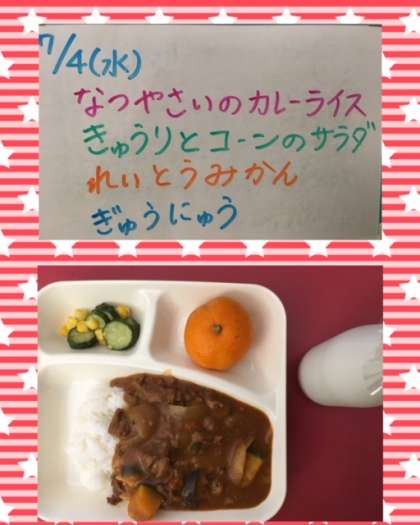 7/4(水)
なつやさいのカレーライス
きゅうりとコーンのサラダ
れいとうみかん
ぎゅうにゅう